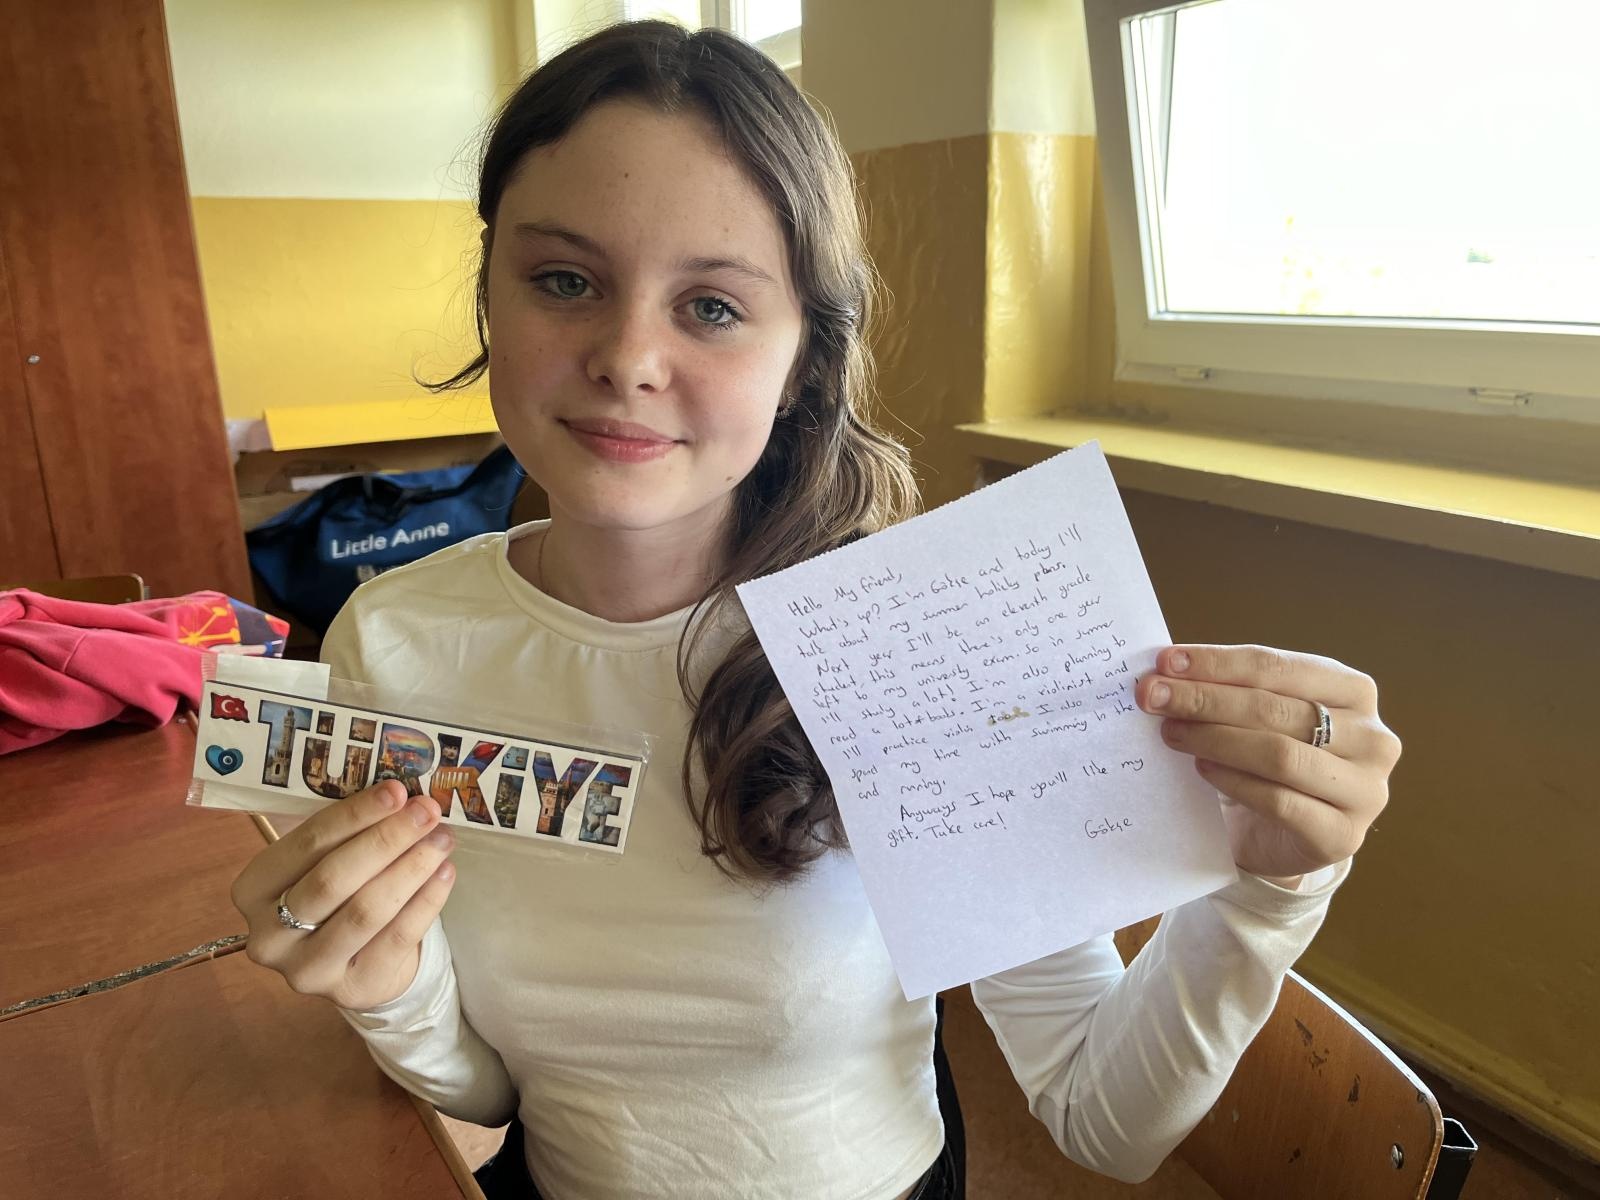 Little Anne
TÜRKİYE
Hello My friend,
What's up? I'm Gökçe and today I'll
talk about my summer holiday plans.
Next year I'll be an eleventh grade
student, this means there's only one year
left to my university exam. So in summer
I'll study a lot! I'm also planning to
read a lot of books. I'm a violinist and
I'll practice violin too. I also want
spend my time with swimming in the
and running.
Anyways I hope you'll like my
gift. Take care!
Gökçe